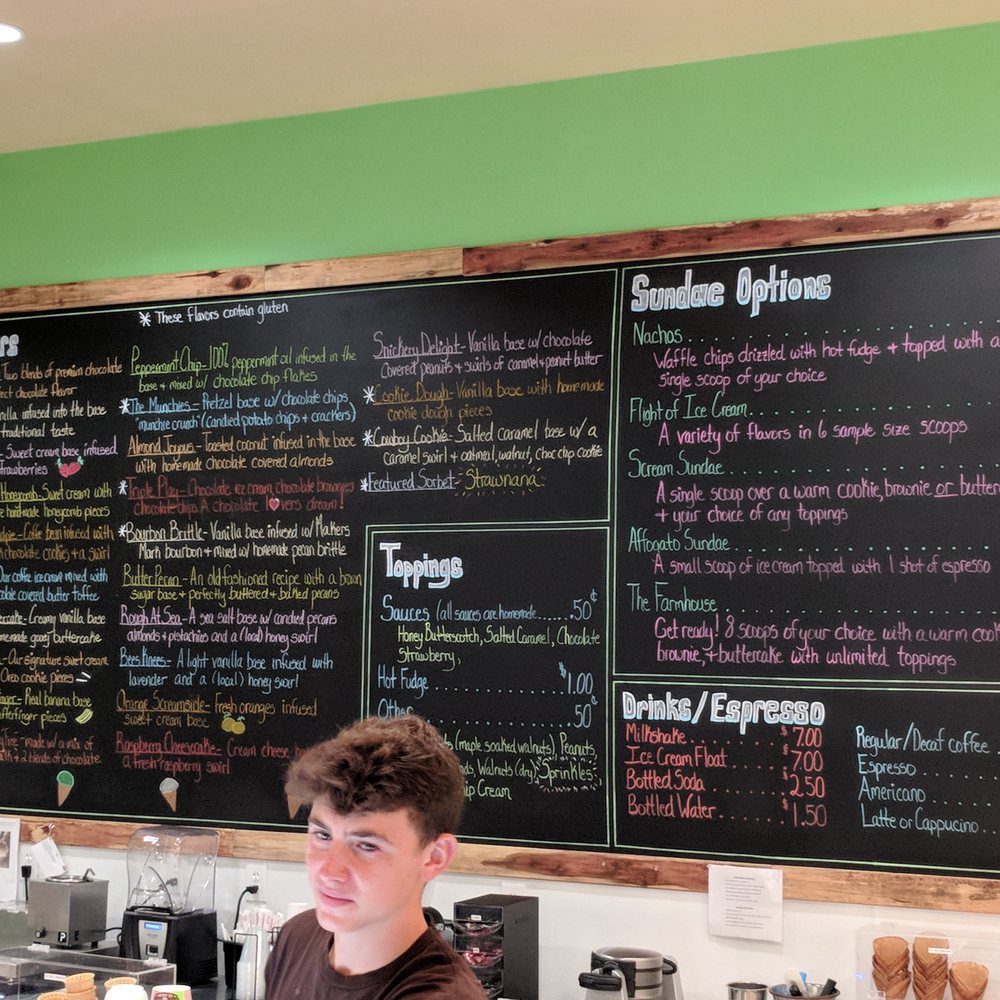 * These flavors contain gluten
rs
Two blends of premium chocolate
ct chocolate flavor
nilla infused into the base
traditional taste
- Sweet cream base infused
strawberries
Honeycomb - Sweet cream with
handmade honeycomb pieces
Coffee bean infused with
chocolate cookies, & a swirl
Our coffee ice cream mixed with
chocolate covered butter toffee
ercake - Creamy vanilla base
omemade gooey buttercake
- Our signature sweet cream
Oreo cookie pieces
nger - Real banana base
utterfinger pieces
made w/ a mix of
2 blends of chocolate
Peppermint Chip - 100% peppermint oil infused in the
base & mixed w/ chocolate chip flakes
* The Munchies - Pretzel base w/ chocolate chips,
"munchie crunch" (candied potato chips & crackers)
Almond Joyous - Toasted coconut infused in the base
with homemade chocolate covered almonds
* Triple Play - Chocolate ice cream chocolate brownies
chocolate chips. A chocolate lovers dream!
* Bourbon Brittle - Vanilla base infused w/ Makers
Mark bourbon & mixed w/ homemade pecan brittle
Butter Pecan - An old fashioned recipe with a brown
sugar base & perfectly buttered & baked pecans
Rough At Sea - A sea salt base w/ candied pecans
almonds & pistachios and a (local) honey swirl
Bees Knees - A light vanilla base infused with
lavender and a (local) honey swirl
Orange Screamsicle - Fresh oranges infused
sweet cream base
Raspberry Cheesecake - Cream cheese ba
a fresh raspberry swirl
Snickery Delight - Vanilla base w/ chocolate
covered peanuts & swirls of caramel & peanut butter
* Cookie Dough - Vanilla base with homemade
cookie dough pieces
* Cowboy Cookie - Salted caramel base w/ a
caramel swirl & oatmeal, walnut, choc chip cookie
* Featured Sorbet - Strawnana
Toppings
Sauces (all sauces are homemade.......50¢
Honey Butterscotch, Salted Caramel, Chocolate
Strawberry,
Hot Fudge.............$1.00
Other..............50¢
ts (maple soaked walnuts), Peanuts,
nds, Walnuts (dry), Sprinkles
ip Cream
Sundae Options
Nachos
Waffle chips drizzled with hot fudge & topped with a
single scoop of your choice
Flight of Ice Cream
A variety of flavors in 6 sample size scoops
Scream Sundae
A single scoop over a warm cookie, brownie or butter
& your choice of any toppings
Affogato Sundae
A small scoop of ice cream topped with 1 shot of espresso
The Farmhouse
Get ready! 8 scoops of your choice with a warm cook
brownie, & buttercake with unlimited toppings
Drinks/Espresso
Milkshake..........$7.00
Ice Cream Float......$7.00
Bottled Soda........$2.50
Bottled Water.......$1.50
Regular/Decaf coffee
Espresso
Americano
Latte or Cappucino